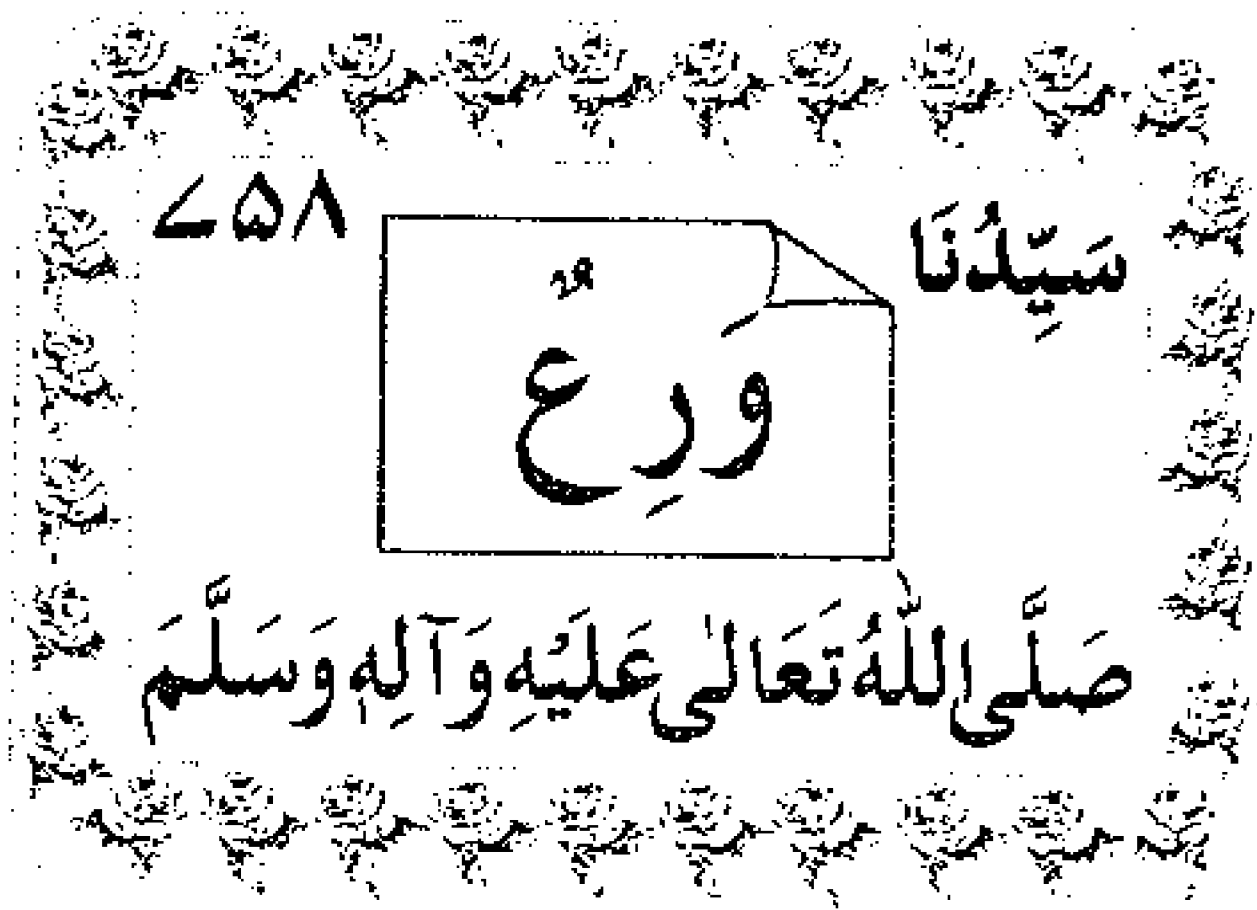 سَيِّدُنَا ۷۵۸
وَرِعٌ
صَلَّى اللّٰهُ تَعَالٰى عَلَيْهِ وَآلِهٖ وَسَلَّمَ